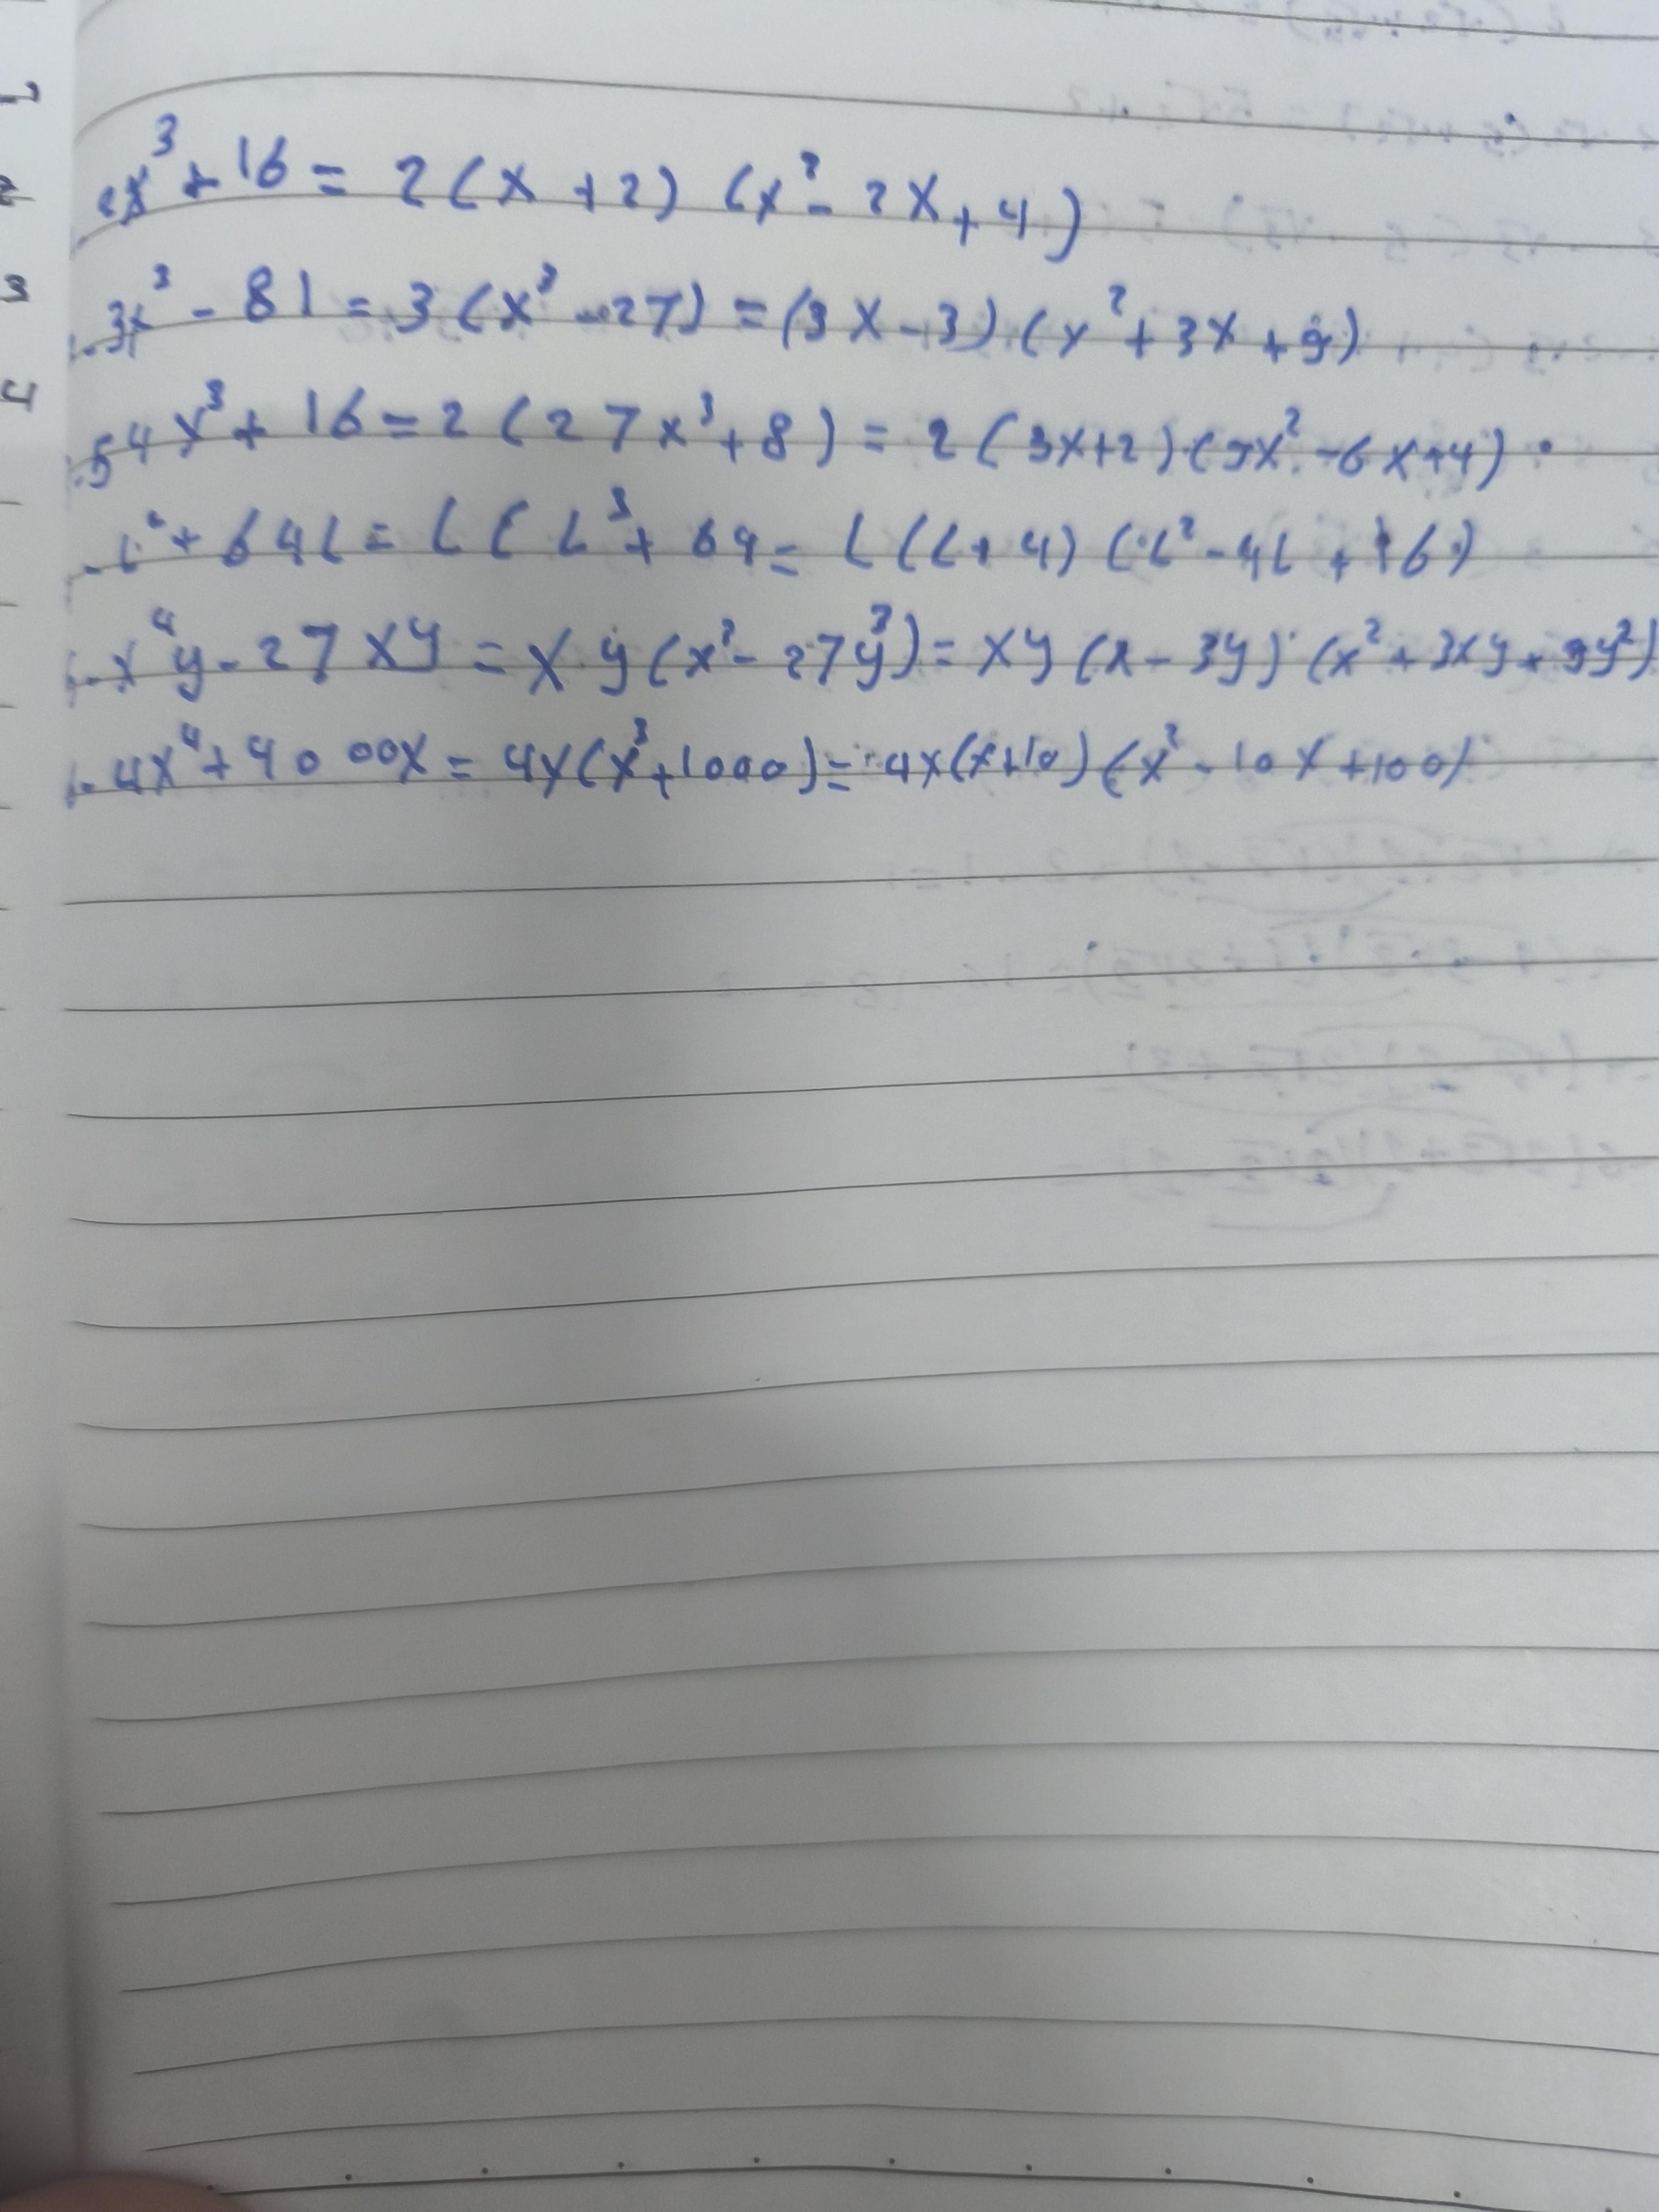 2x³ + 16 = 2 (x + 2) (x² - 2x + 4)
3x³ - 81 = 3 (x³ - 27) = (3x - 3) (x² + 3x + 9)
54x³ + 16 = 2 (27x³ + 8) = 2 (3x+2) (9x² - 6x + 4)
+ 64L = L ( L³ + 64 = L (L + 4) (L² - 4L + 16)
x⁴y - 27xy = xy (x³ - 27y³) = xy (x - 3y) (x² + 3xy + 9y²)
4x⁴ + 4000x = 4x (x³ + 1000) = 4x (x+10) (x² - 10x + 100)